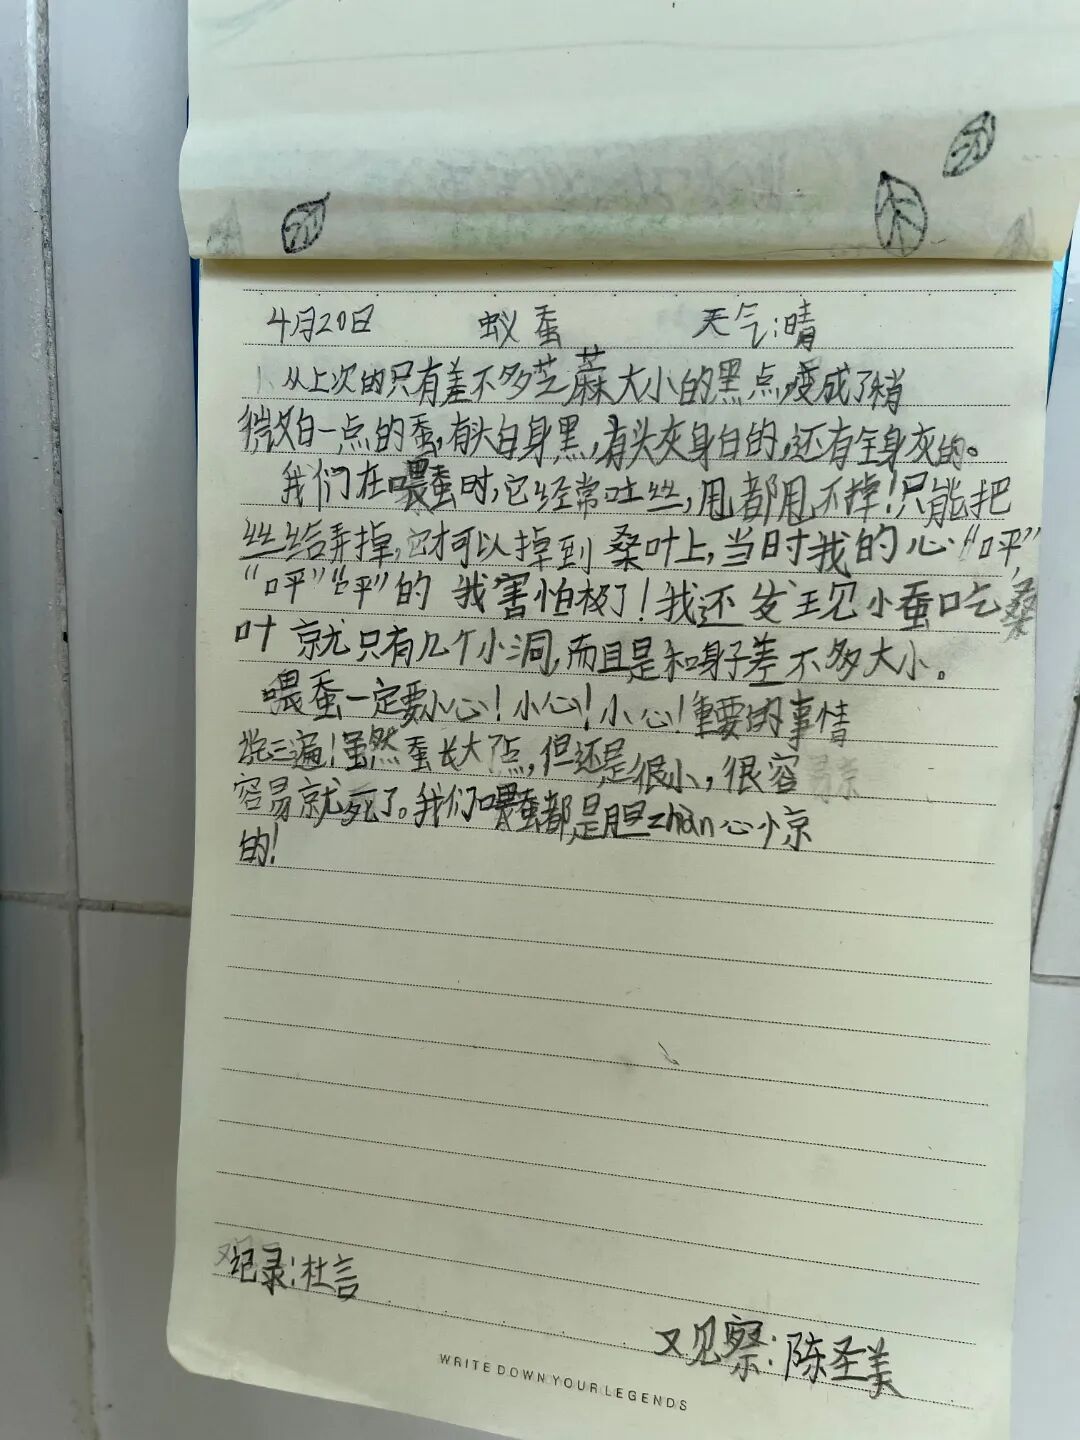 4月20日 蚁蚕 天气:晴
从上次的只有差不多芝蔴大小的黑点,变成了稍
微白一点的蚕,有头白身黑,有头灰身白的,还有全身灰的。
我们在喂蚕时,它经常吐丝,甩都甩不掉!只能把
丝给弄掉,它才可以掉到桑叶上,当时我的心“呯”
“呯”“呯”的 我害怕极了!我还发现小蚕吃桑
叶就只有几个小洞,而且是和身子差不多大小。
喂蚕一定要小心!小心!小心!重要的事情
说三遍!虽然蚕长大了点,但还是很小,很容
容易就死了。我们喂蚕都是胆zhàn心惊
的!
记录:杜言
观察:陈圣美
WRITE DOWN YOUR LEGENDS